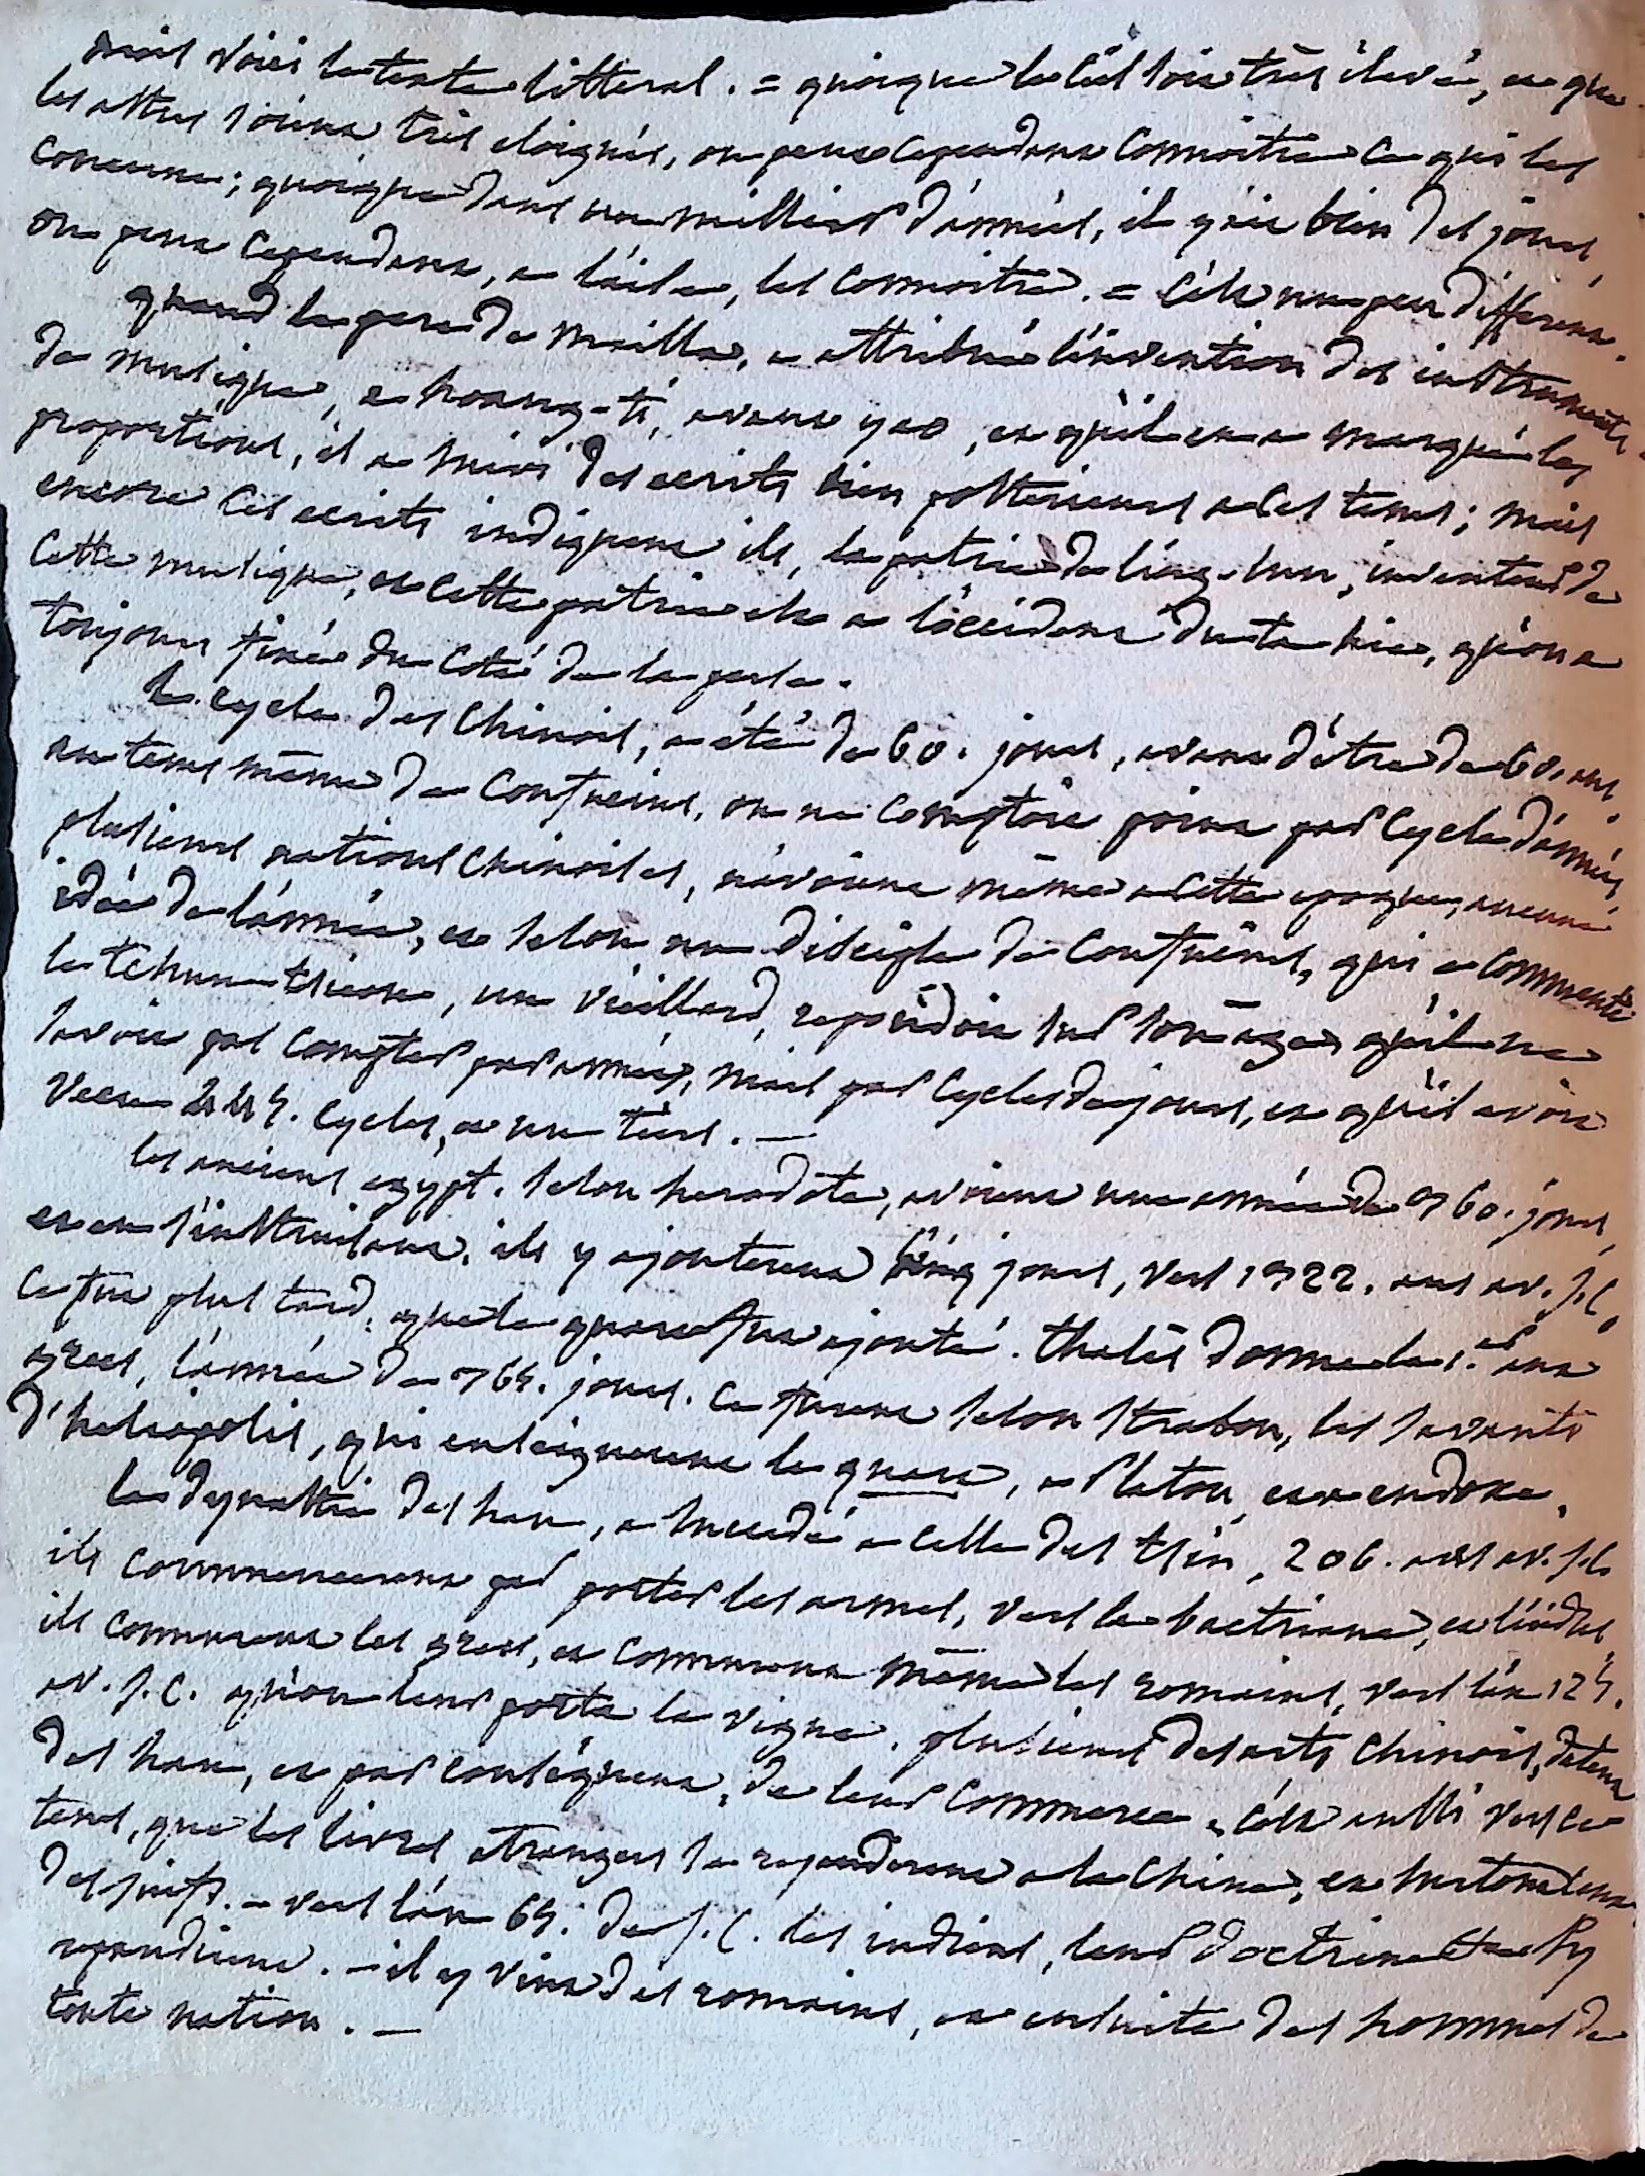 mais voici le texte litteral. = quoique le Ciel soit très élevé, et que
les astres soient très eloignés, on peut cependant connoitre ce qui les
concerne; quoique dans un millier d'années, il y ait bien des jours,
on peut cependant, a l'aise, les connoitre. = C'est un peu différent.
quand le pere de Mailla, a attribué l'invention des instruments
de musique, a hoang-ti, avant yao, et qu'il en a marqué les
proportions, il a suivi des ecrits bien posterieurs a ces tems; mais
encore ces ecrits indiquent ils, la patrie de ling-lun, inventeur de
cette musique, et cette patrie est a l'occident du ta hia, qu'on a
toujours fixé du coté de la perse.
le cycle des Chinois, a été de 60. jours, avant d'être de 60. ans.
au tems même de Confucius, on ne comptoit point par Cycle d'années,
plusieurs nations chinoises, n'avoient même a cette epoque, aucune
idée de l'année, et selon un disciple de Confucius, qui a commenté
le tchun-tsieou, un vieillard, repondoit sur son age, qu'il ne
savoit pas compter par années, mais par Cycles de jours, et qu'il avoit
vecu 445. cycles, et un tiers. —
les anciens egypt. selon herodote, avoient une année de 360. jours,
et en s'instruisant, ils y ajouterent cinq jours, vers 1322. ans av. J.C.
ce fut plus tard, que le quart fut ajouté. thalès donna le 1.er aux
grecs, l'année de 365. jours. ce furent selon Strabon, les savants
d'heliopolis, qui enseignerent le quart, a Platon, et a eudoxe.
la dynastie des han, a succedé a celle des tsin, 206. ans av. J.C.
ils commencerent par porter les armes, vers la bactriane, et l'indus,
ils connurent les grecs, et connurent même les romains, vers l'an 125.
av. J.C. qu'on leur porta la vigne. plusieurs des arts chinois, datent
des han, et par conséquent, de leur commerce. c'est aussi vers ce
tems, que les livres etrangers se repandirent a la Chine, et surtout ceux
des juifs. — vers l'an 65. de J.C. les indiens, leur doctrine s'y
repandirent. — il y vint des romains, et ensuite des hommes de
toute nation. —